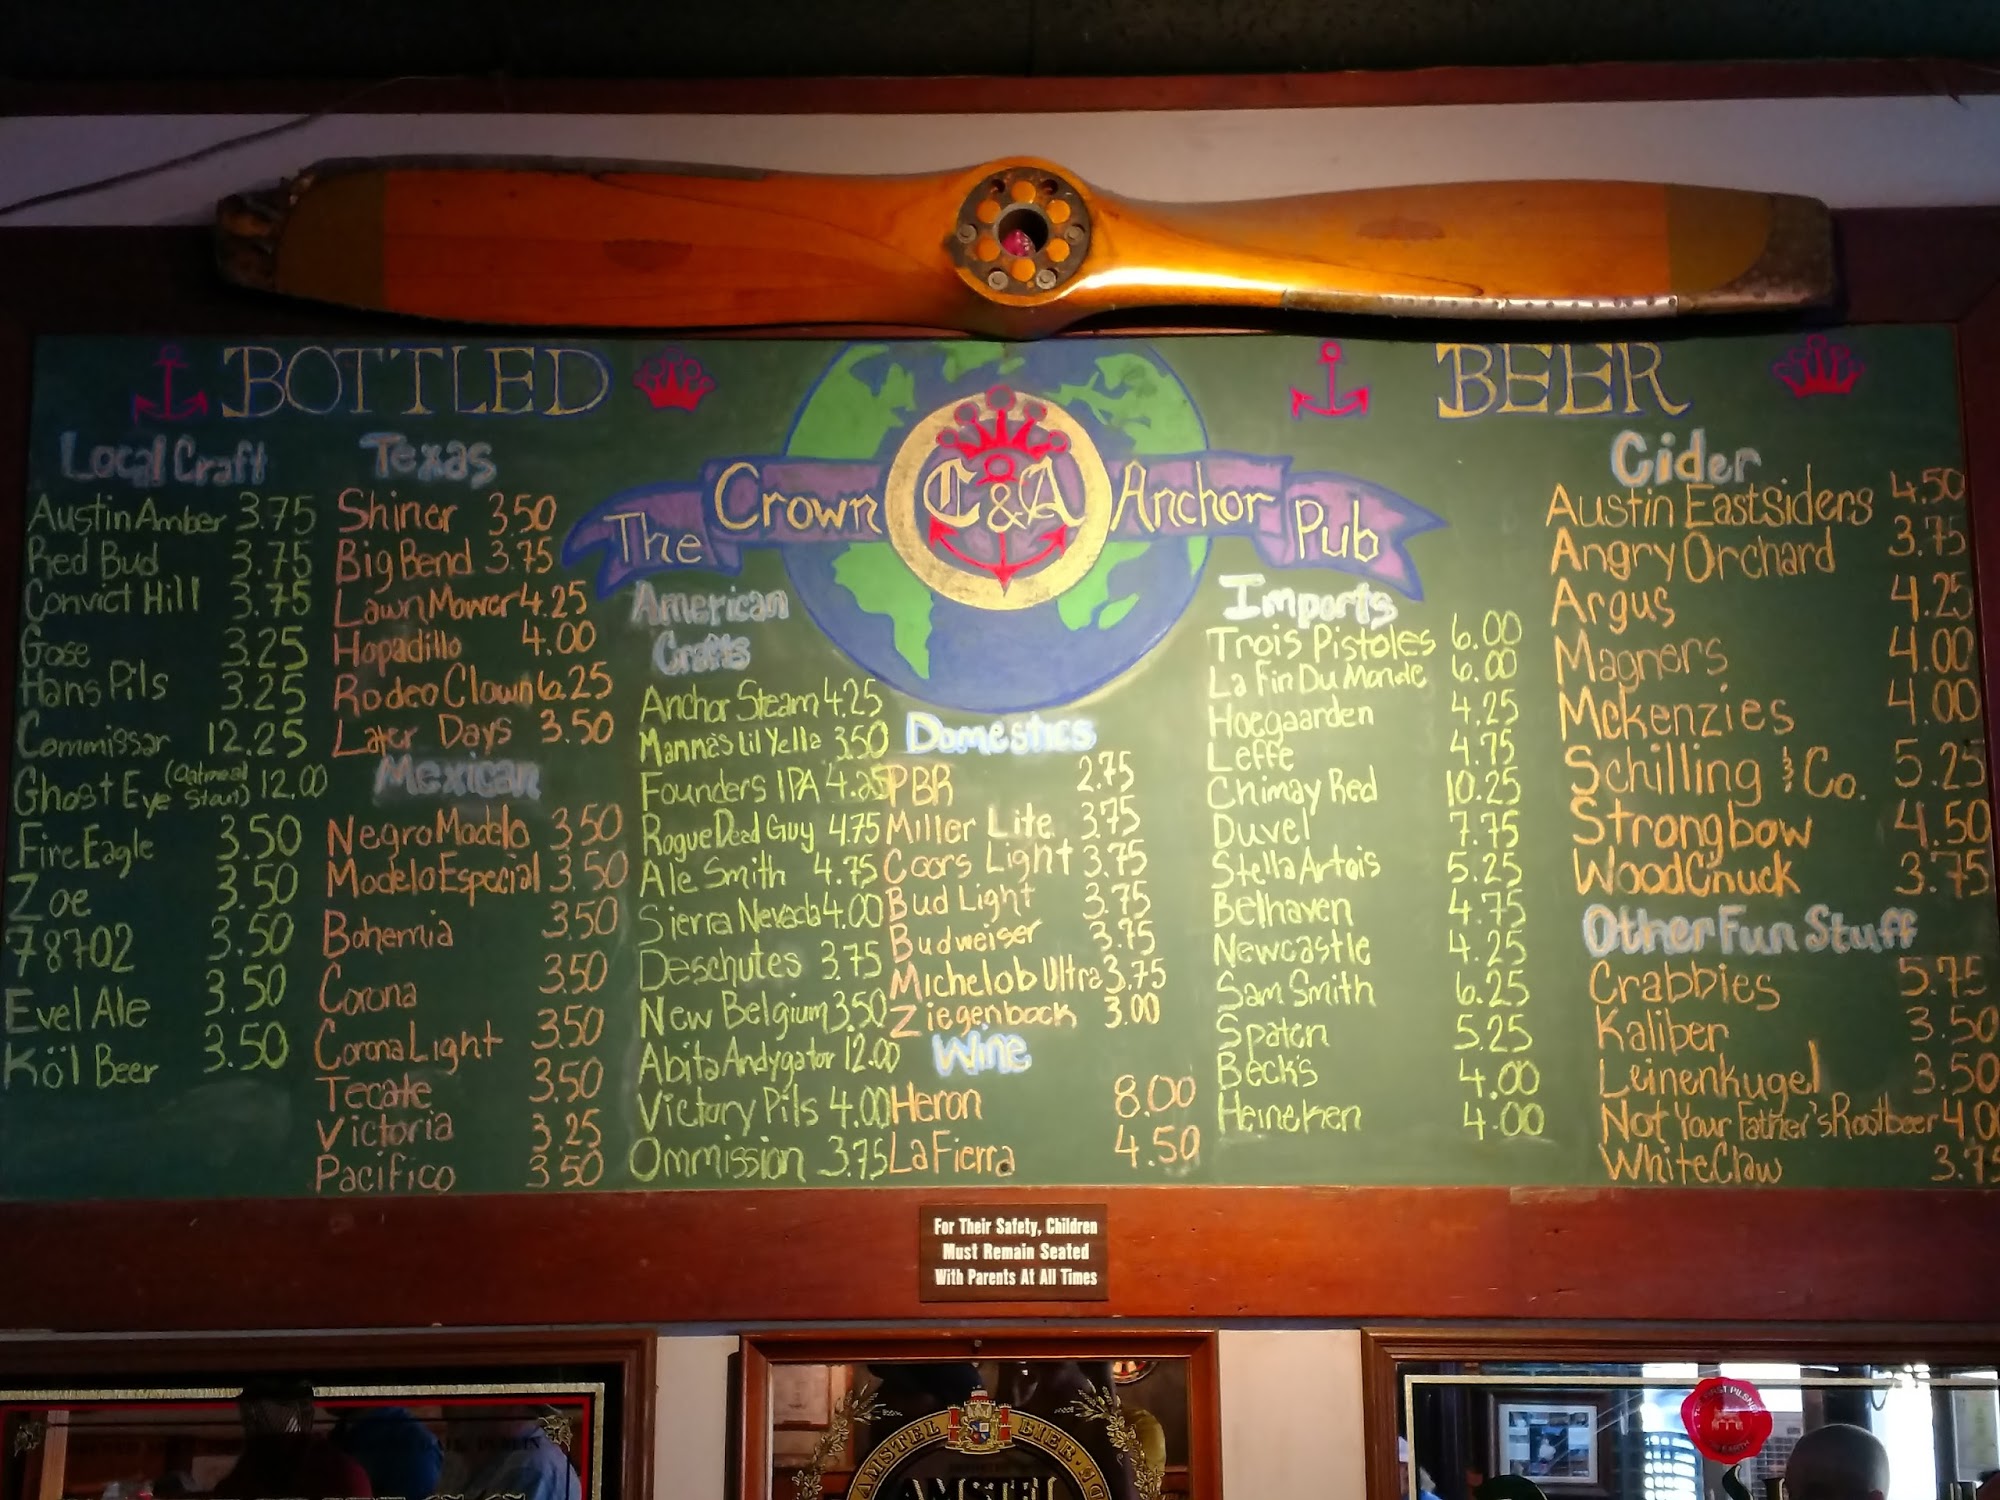 BOTTLED
BEER
The Crown C&A Anchor Pub
Local Craft
Austin Amber 3.75
Red Bud 3.75
Convict Hill 3.75
Gose 3.25
Hans Pils 3.25
Commissar 12.25
Ghost Eye (Oatmeal Stout) 12.00
Fire Eagle 3.50
Zoe 3.50
78702 3.50
Evel Ale 3.50
Köl Beer 3.50
Texas
Shiner 3.50
Big Bend 3.75
Lawn Mower 4.25
Hopadillo 4.00
Rodeo Clown 6.25
Later Days 3.50
Mexican
Negro Modelo 3.50
Modelo Especial 3.50
Bohemia 3.50
Corona 3.50
Corona Light 3.50
Tecate 3.50
Victoria 3.25
Pacifico 3.50
American
Crafts
Anchor Steam 4.25
Mamma's Lil Yella 3.50
Founders IPA 4.25
Rogue Dead Guy 4.75
Ale Smith 4.75
Sierra Nevada 4.00
Deschutes 3.75
New Belgium 3.50
Abita Andygator 12.00
Victory Pils 4.00
Ommission 3.75
Domestics
PBR 2.75
Miller Lite 3.75
Coors Light 3.75
Bud Light 3.75
Budweiser 3.75
Michelob Ultra 3.75
Ziegenbock 3.00
Wine
Heron 8.00
La Fierra 4.50
Imports
Trois Pistoles 6.00
La Fin Du Monde 6.00
Hoegaarden 4.25
Leffe 4.75
Chimay Red 10.25
Duvel 7.75
Stella Artois 5.25
Belhaven 4.75
Newcastle 4.25
Sam Smith 6.25
Spaten 5.25
Beck's 4.00
Heineken 4.00
Cider
Austin Eastsiders 4.50
Angry Orchard 3.75
Argus 4.25
Magners 4.00
Mckenzies 4.00
Schilling & Co. 5.25
Strongbow 4.50
WoodChuck 3.75
Other Fun Stuff
Crabbies 5.75
Kaliber 3.50
Leinenkugel 3.50
Not Your Father's Rootbeer 4.00
White Claw 3.75
For Their Safety, Children
Must Remain Seated
With Parents At All Times
AMSTEL BIER
AMSTEL